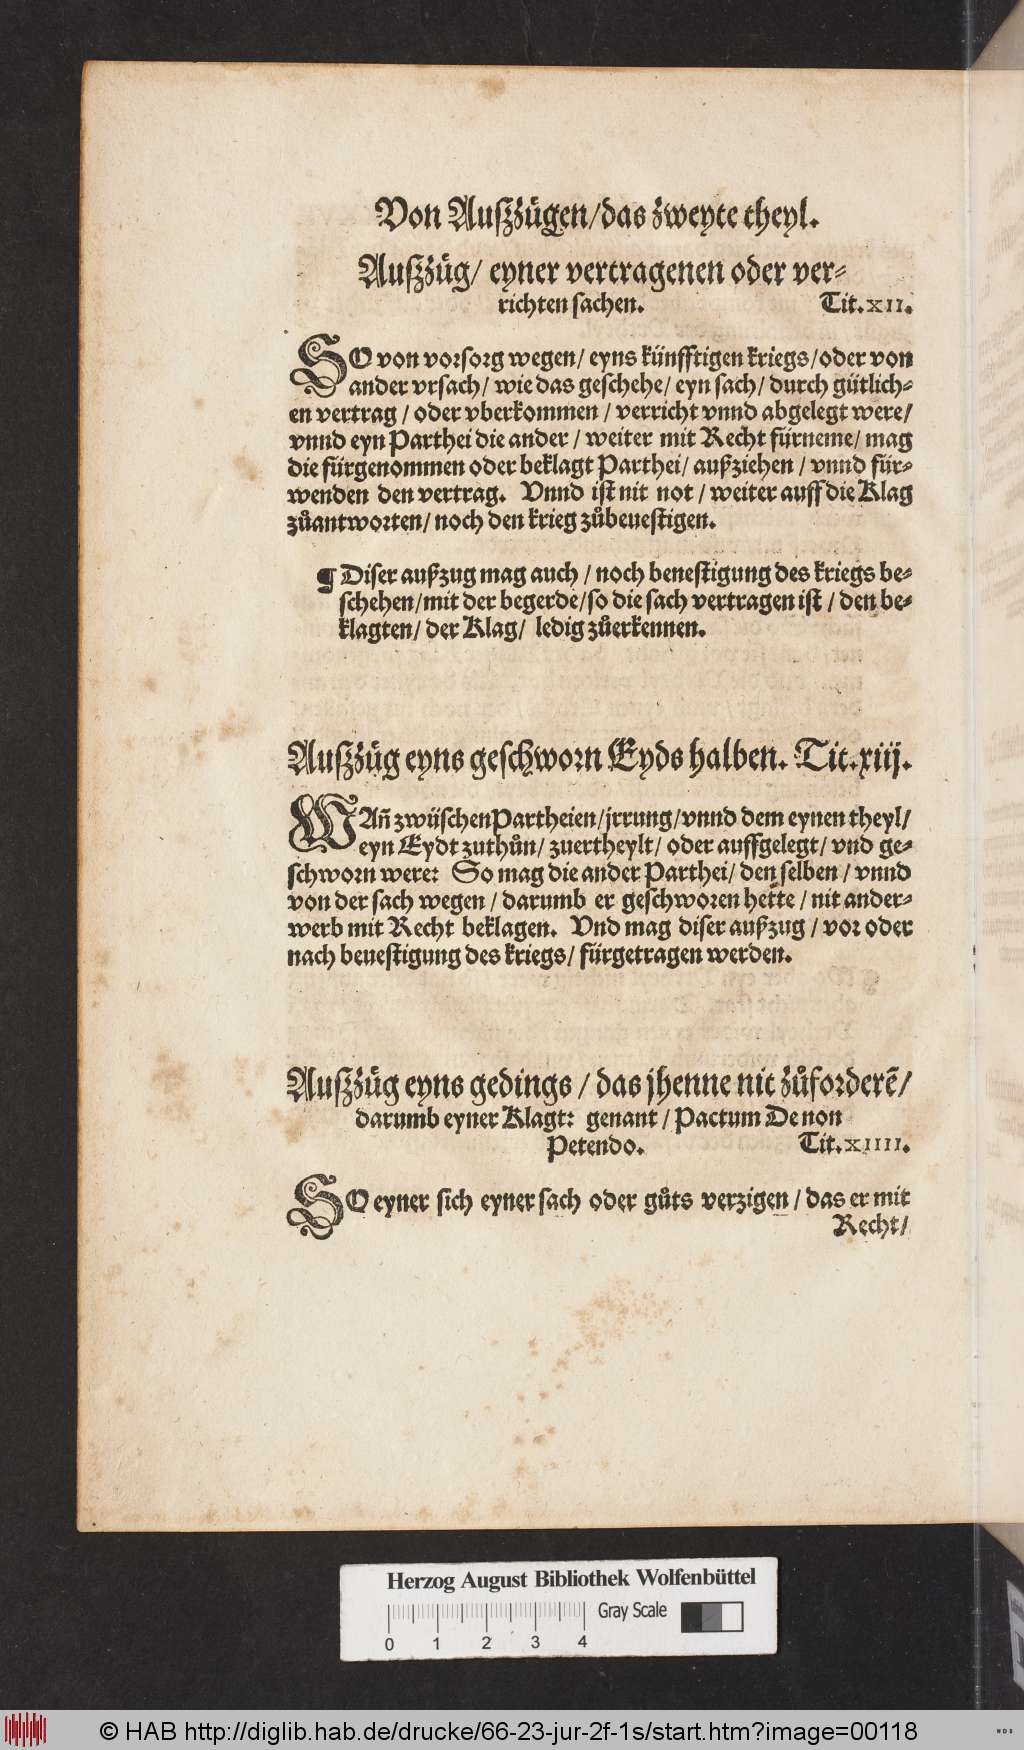 Von Auszzügen/das zweyte theyl.
Auszzüg/ eyner vertragenen oder ver⸗
richten sachen. Tit. XII.
SO von vorsorg wegen/ eyns künfftigen kriegs/oder von
ander vrsach/ wie das geschehe/ eyn sach/ durch gütlich⸗
en vertrag / oder vberkommen / verricht vnnd abgelegt were/
vnnd eyn Parthei die ander / weiter mit Recht fürneme/ mag
die fürgenommen oder beklagt Parthei/ außziehen / vnnd für⸗
wenden den vertrag. Vnnd ist nit not / weiter auff die Klag
zůantworten/ noch den krieg zůbeuestigen.
¶ Diser außzug mag auch / noch benestigung des kriegs be⸗
schehen/mit der begerde/so die sach vertragen ist / den be⸗
klagten/ der Klag/ ledig zůerkennen.
Auszzüg eyns geschworn Eyds halben. Tit.xiij.
WAñ zwüschen Partheien/jrrung/vnnd dem eynen theyl/
eyn Eydt zuthůn/ zuertheylt/ oder auffgelegt/ vnd ge⸗
schworn were: So mag die ander Parthei/ den selben / vnnd
von der sach wegen / darumb er geschworen hette / nit ander⸗
werb mit Recht beklagen. Vnd mag diser außzug / vor oder
nach beuestigung des kriegs/ fürgetragen werden.
Auszzüg eyns gedings / das jhenne nit zůforderē/
darumb eyner Klagt: genant / Pactum De non
Petendo. Tit. XIIII.
SO eyner sich eyner sach oder gůts verzigen / das er mit
Recht/
Herzog August Bibliothek Wolfenbüttel
Gray Scale
0 1 2 3 4
© HAB http://diglib.hab.de/drucke/66-23-jur-2f-1s/start.htm?image=00118
WDB